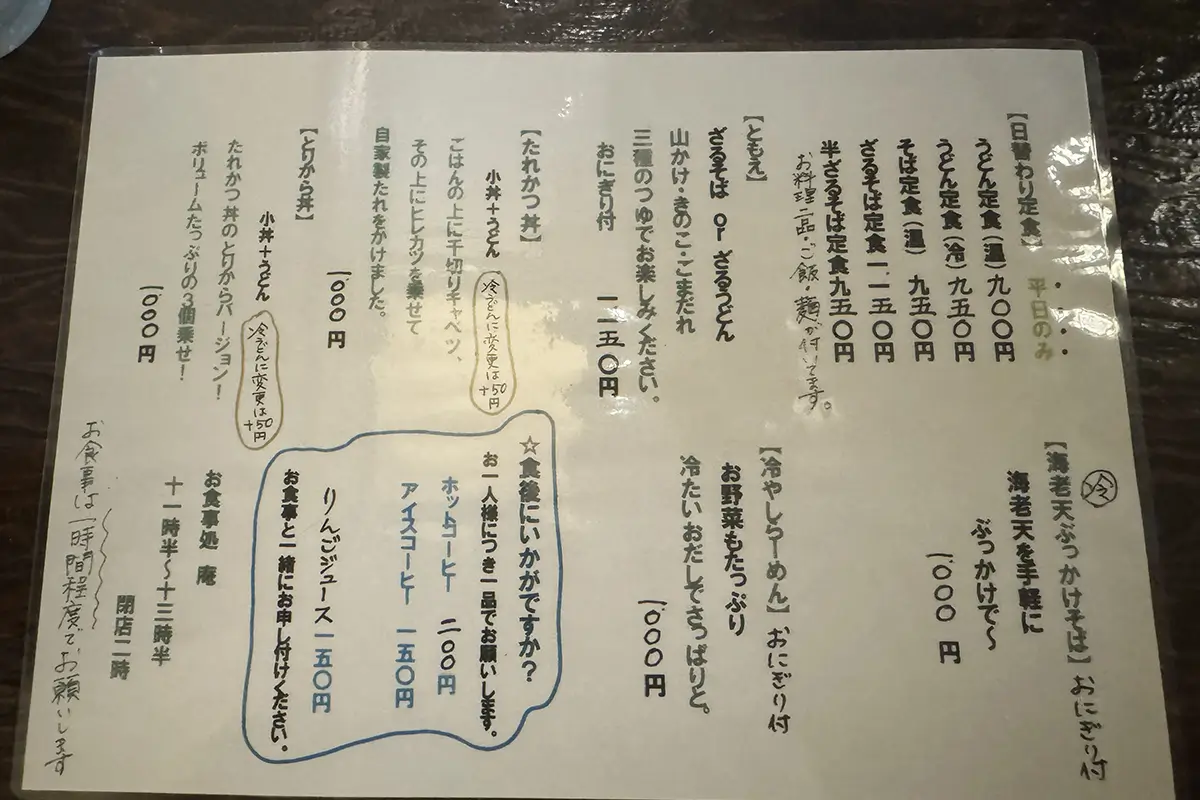 【日替わり定食】 平日のみ
うどん定食(温)九〇〇円
うどん定食(冷)九五〇円
そば定食(温)九五〇円
ざるそば定食 一、一五〇円
半ざるそば定食九五〇円
お料理二品・ご飯・麺が付いてます。
【ともえ】
ざるそば or ざるうどん
山かけ・きのこ・ごまだれ
三種のつゆでお楽しみください。
おにぎり付 一、一五〇円
【たれかつ丼】
小丼+うどん
冷うどんに変更は
+50円
ごはんの上に千切りキャベツ、
その上にヒレカツを乗せて
自家製たれをかけました。
一、〇〇〇円
【とりから丼】
小丼+うどん
冷うどんに変更は
+50円
たれかつ丼のとりからバージョン!
ボリュームたっぷりの3個乗せ!
一、〇〇〇円
冷
【海老天ぶっかけそば】おにぎり付
海老天を手軽に
ぶっかけで~
一、〇〇〇円
【冷やしらーめん】おにぎり付
お野菜もたっぷり
冷たいおだしでさっぱりと。
一、〇〇〇円
☆食後にいかがですか?
お一人様につき一品でお願いします。
ホットコーヒー 二〇〇円
アイスコーヒー 一五〇円
りんごジュース 一五〇円
お食事と一緒にお申し付けください。
お食事処 庵
十一時半~十三時半
閉店二時
お食事は一時間程度でお願いします